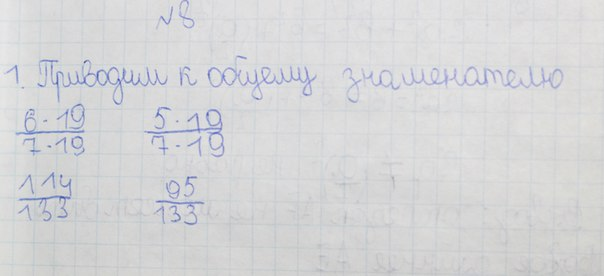 №8
1. Приводим к общему знаменателю
6·19 5·19
7·19 7·19
114 95
133 133